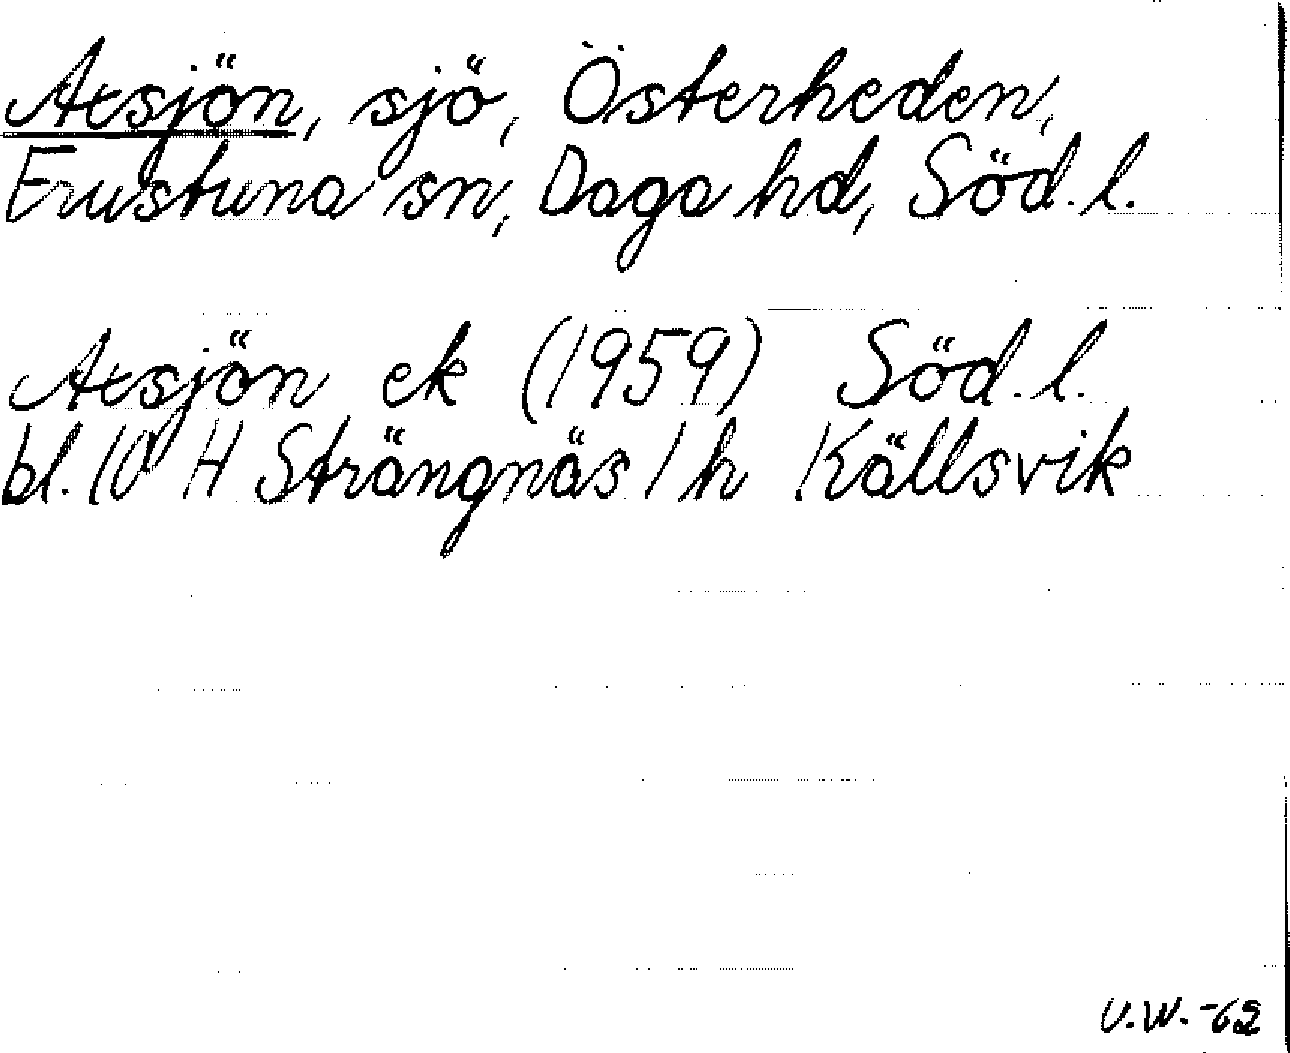 Axsjön, sjö, Österheden,
Frustuna sn, Daga hd, Söd. l.
Axsjön ek (1959) Söd. l.
bl. 10 H Strängnäs 1 h Källsvik
U.W. -62